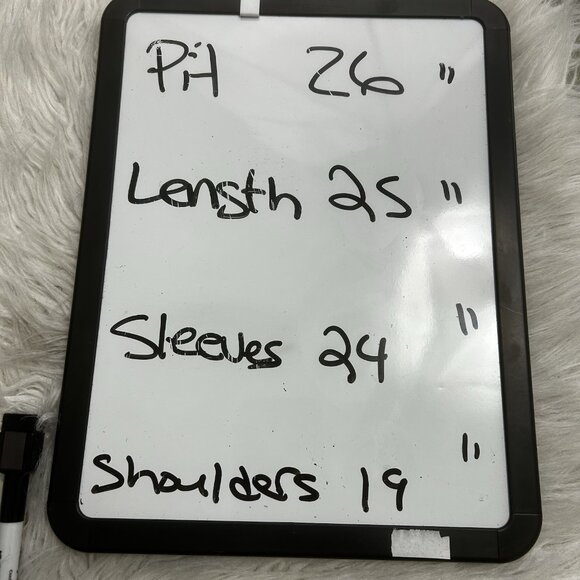 Pit 26 "
Length 25 "
Sleeves 24 "
Shoulders 19 "